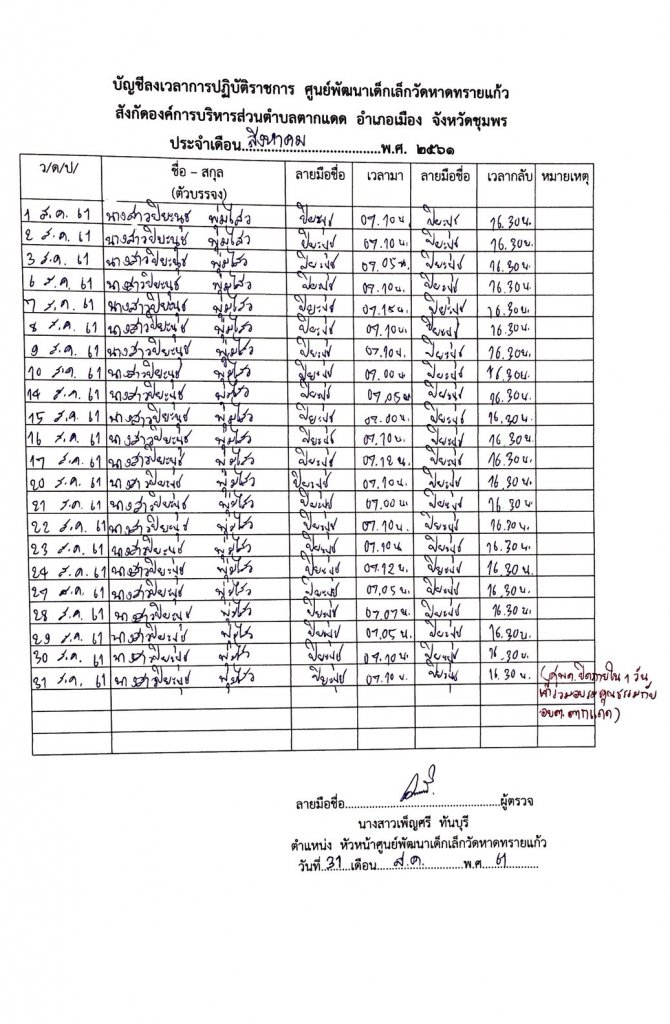 บัญชีลงเวลาการปฏิบัติราชการ ศูนย์พัฒนาเด็กเล็กวัดหาดทรายแก้ว
สังกัดองค์การบริหารส่วนตำบลตากแดด อำเภอเมือง จังหวัดชุมพร
ประจำเดือน...สิงหาคม...พ.ศ. ๒๕๖๑
ว/ด/ป/ ชื่อ – สกุล (ตัวบรรจง) ลายมือชื่อ เวลามา ลายมือชื่อ เวลากลับ หมายเหตุ
1 ส.ค. 61 นางสาวปิยะนุช พุ่มไสว ปิยะนุช 07.10 น. ปิยะนุช 16.30 น.
2 ส.ค. 61 นางสาวปิยะนุช พุ่มไสว ปิยะนุช 07.10 น. ปิยะนุช 16.30 น.
3 ส.ค. 61 นางสาวปิยะนุช พุ่มไสว ปิยะนุช 07.05 น. ปิยะนุช 16.30 น.
6 ส.ค. 61 นางสาวปิยะนุช พุ่มไสว ปิยะนุช 07.10 น. ปิยะนุช 16.30 น.
7 ส.ค. 61 นางสาวปิยะนุช พุ่มไสว ปิยะนุช ปิยะนุช 16.30 น.
8 ส.ค. 61 นางสาวปิยะนุช พุ่มไสว ปิยะนุช 07.10 น. ปิยะนุช 16.30 น.
9 ส.ค. 61 นางสาวปิยะนุช พุ่มไสว ปิยะนุช 07.10 น. ปิยะนุช 16.30 น.
10 ส.ค. 61 นางสาวปิยะนุช พุ่มไสว ปิยะนุช 07.00 น. ปิยะนุช 16.30 น.
14 ส.ค. 61 นางสาวปิยะนุช พุ่มไสว ปิยะนุช 07.05 น. ปิยะนุช 16.30 น.
15 ส.ค. 61 นางสาวปิยะนุช พุ่มไสว ปิยะนุช 07.00 น. ปิยะนุช 16.30 น.
16 ส.ค. 61 นางสาวปิยะนุช พุ่มไสว ปิยะนุช 07.10 น. ปิยะนุช 16.30 น.
17 ส.ค. 61 นางสาวปิยะนุช พุ่มไสว ปิยะนุช 07.12 น. ปิยะนุช 16.30 น.
20 ส.ค. 61 นางสาวปิยะนุช พุ่มไสว ปิยะนุช 07.10 น. ปิยะนุช 16.30 น.
21 ส.ค. 61 นางสาวปิยะนุช พุ่มไสว ปิยะนุช 07.00 น. ปิยะนุช 16.30 น.
22 ส.ค. 61 นางสาวปิยะนุช พุ่มไสว ปิยะนุช 07.10 น. ปิยะนุช 16.30 น.
23 ส.ค. 61 นางสาวปิยะนุช พุ่มไสว ปิยะนุช 07.10 น ปิยะนุช 16.30 น.
24 ส.ค. 61 นางสาวปิยะนุช พุ่มไสว ปิยะนุช 07.12 น. ปิยะนุช 16.30 น.
27 ส.ค. 61 นางสาวปิยะนุช พุ่มไสว ปิยะนุช 07.05 น. ปิยะนุช 16.30 น.
28 ส.ค. 61 นางสาวปิยะนุช พุ่มไสว ปิยะนุช 07.07 น. ปิยะนุช 16.30 น.
29 ส.ค. 61 นางสาวปิยะนุช พุ่มไสว ปิยะนุช 07.05 น. ปิยะนุช 16.30 น.
30 ส.ค. 61 นางสาวปิยะนุช พุ่มไสว ปิยะนุช 07.10 น. ปิยะนุช 16.30 น.
31 ส.ค. 61 นางสาวปิยะนุช พุ่มไสว ปิยะนุช 07.10 น. ปิยะนุช 16.30 น.
(ศพด. ปิดภายใน 1 วัน
เข้าร่วมอบรมคุณธรรมกับ
อบต. ตากแดด)
ลายมือชื่อ......ผู้ตรวจ
นางสาวเพ็ญศรี ทันบุรี
ตำแหน่ง หัวหน้าศูนย์พัฒนาเด็กเล็กวัดหาดทรายแก้ว
วันที่ 31 เดือน ส.ค. พ.ศ 61